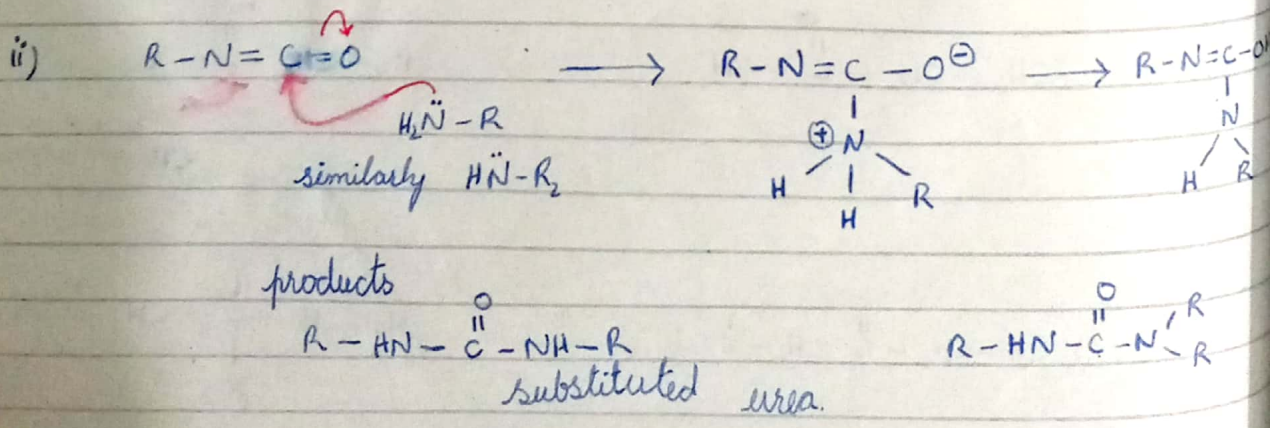 ii) R-N=C=O → R-N=C-O⊖ → R-N=C-OH
H₂N̈-R ⊕N N
similarly HN̈-R₂ H H R H R
products
O O R
R-HN-C-NH-R R-HN-C-N R
substituted urea.